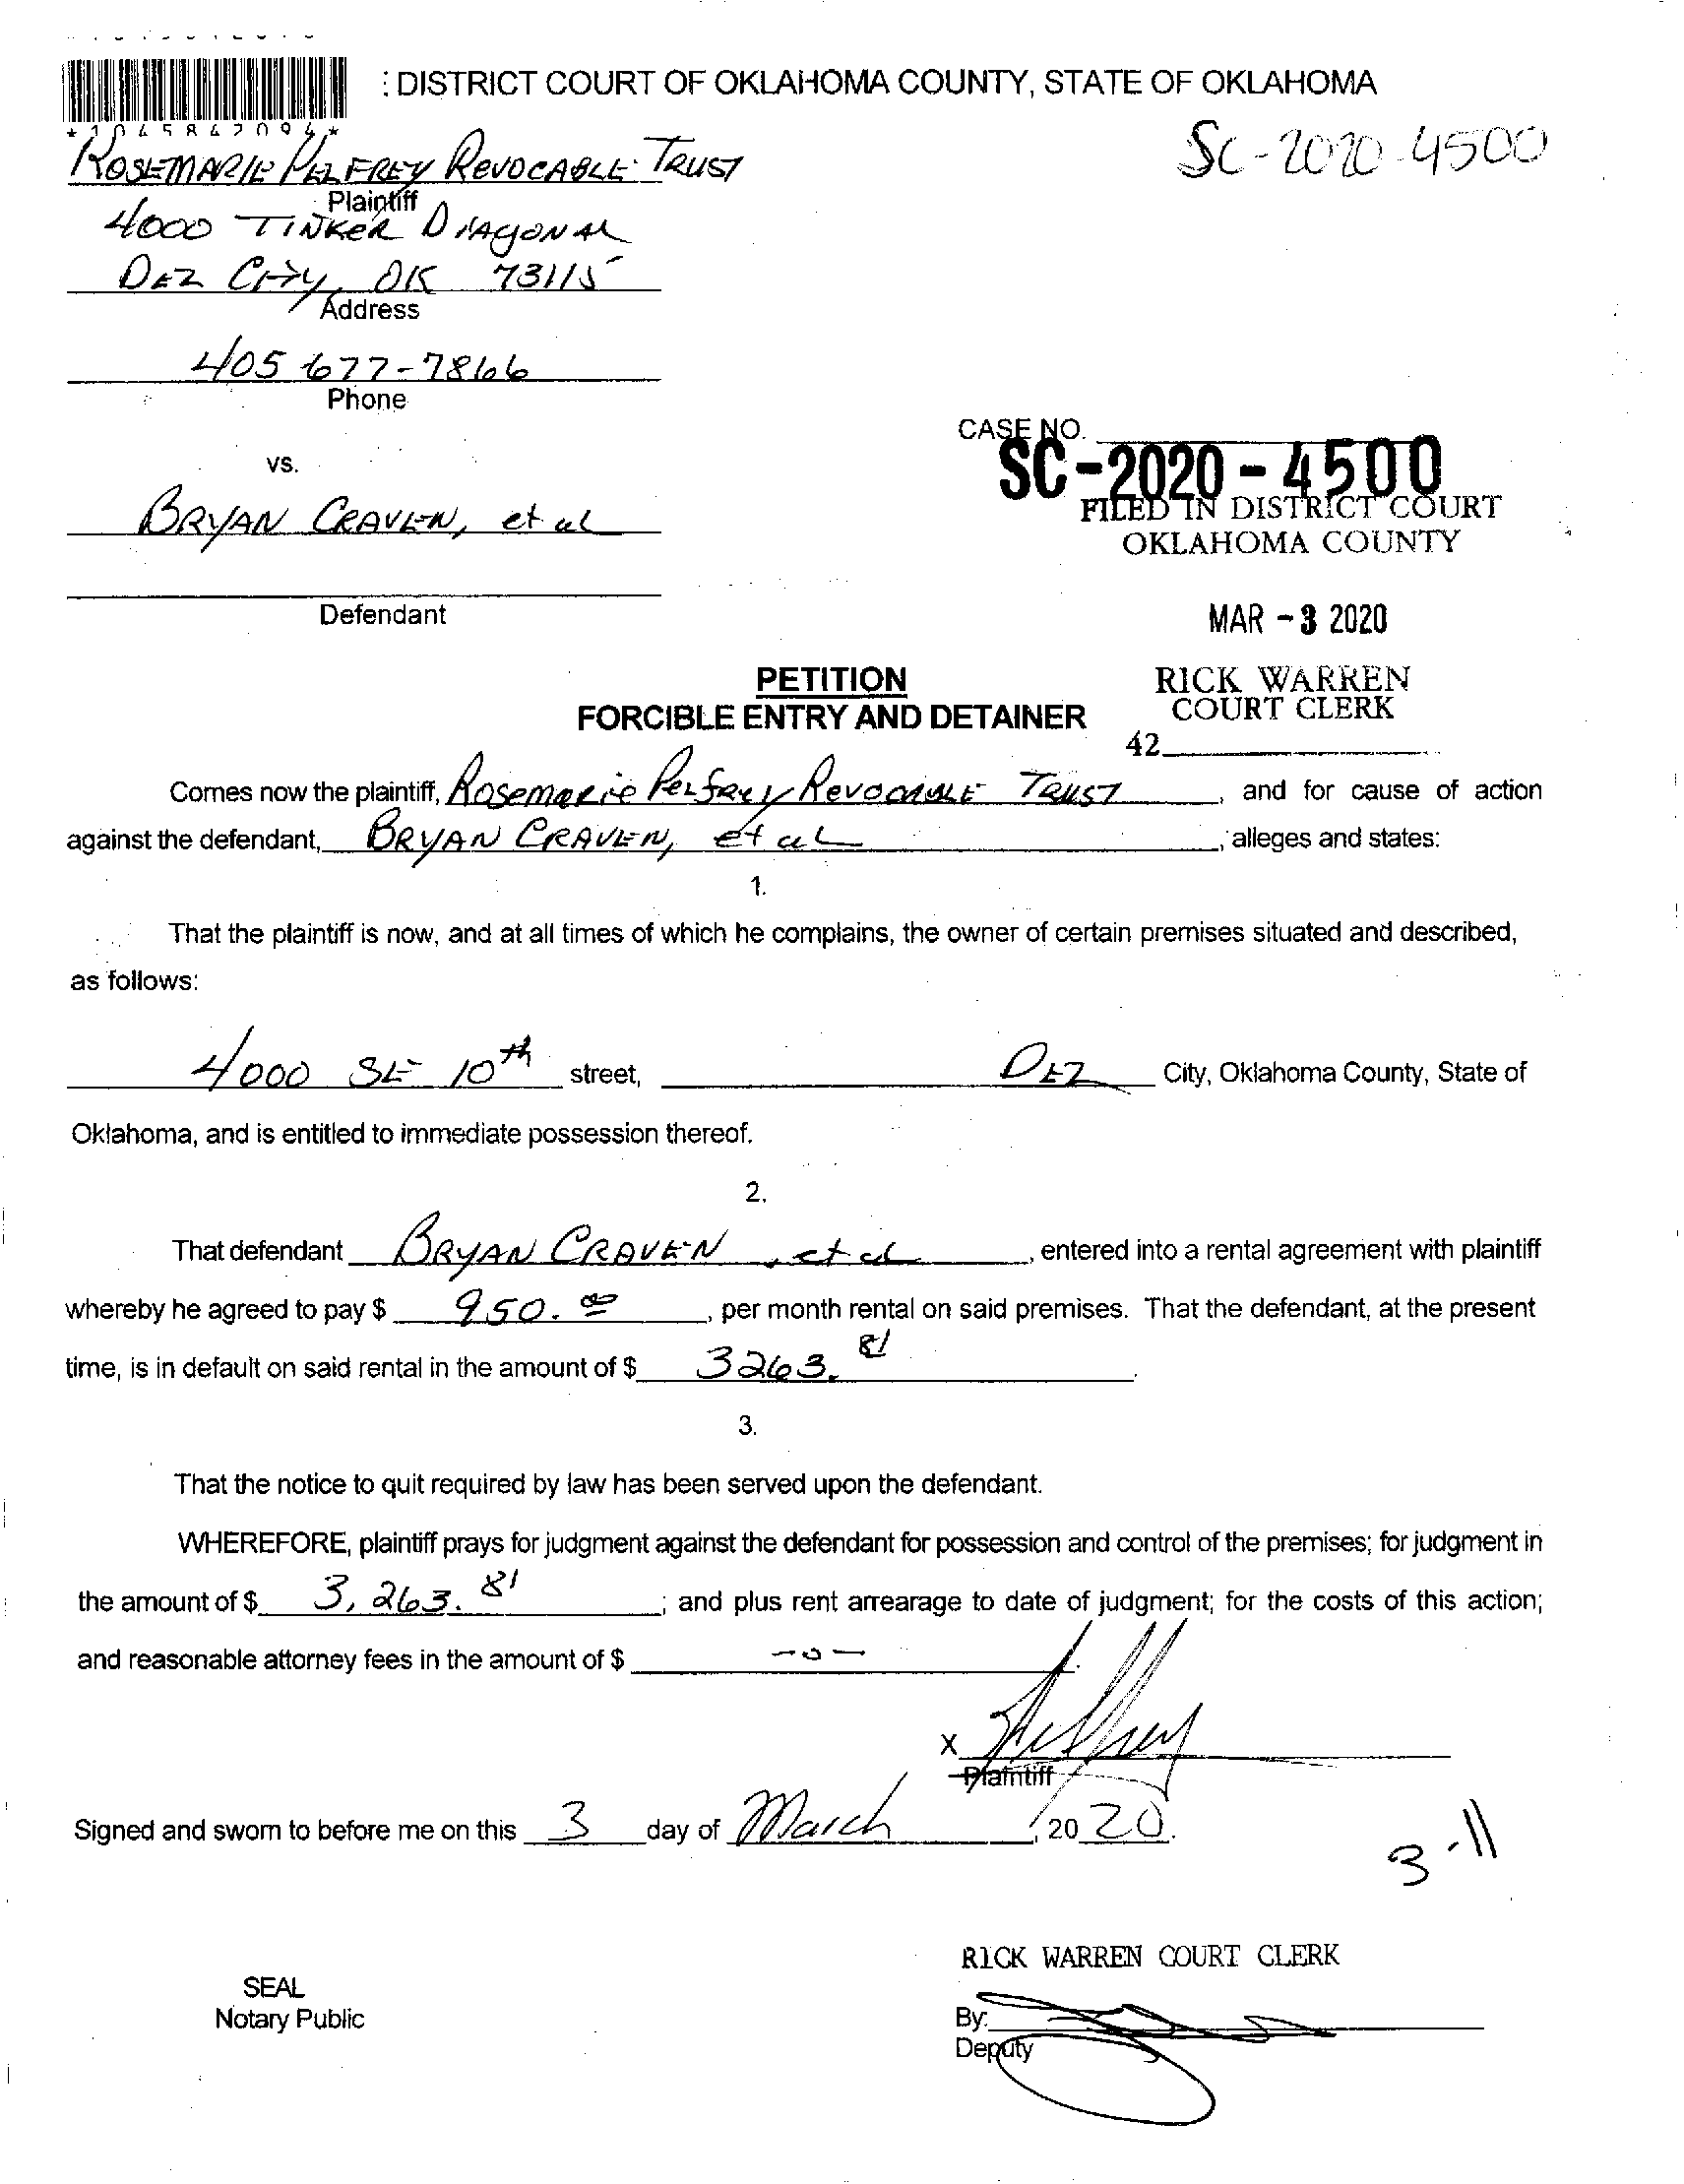 : DISTRICT COURT OF OKLAHOMA COUNTY, STATE OF OKLAHOMA
*1045842094*
SC-2020-4500
ROSEMARIE PELFREY REVOCABLE TRUST
Plaintiff
4000 TINKER DIAGONAL
DEL CITY, OK 73115
Address
405 677-7866
Phone
CASE NO.
SC-2020-4500
vs.
FILED IN DISTRICT COURT
OKLAHOMA COUNTY
BRYAN CRAVEN, et al
Defendant
MAR -3 2020
PETITION
FORCIBLE ENTRY AND DETAINER
RICK WARREN
COURT CLERK
42
Comes now the plaintiff, Rosemarie Pelfrey Revocable TRUST, and for cause of action
against the defendant, BRYAN CRAVEN, et al, alleges and states:
1.
That the plaintiff is now, and at all times of which he complains, the owner of certain premises situated and described,
as follows:
4000 SE 10th street, DEL City, Oklahoma County, State of
Oklahoma, and is entitled to immediate possession thereof.
2.
That defendant BRYAN CRAVEN, et al, entered into a rental agreement with plaintiff
whereby he agreed to pay $ 950.00, per month rental on said premises. That the defendant, at the present
time, is in default on said rental in the amount of $ 3263.81.
3.
That the notice to quit required by law has been served upon the defendant.
WHEREFORE, plaintiff prays for judgment against the defendant for possession and control of the premises; for judgment in
the amount of $ 3,263.81; and plus rent arrearage to date of judgment; for the costs of this action;
and reasonable attorney fees in the amount of $ -0-.
X
Plaintiff
Signed and sworn to before me on this 3 day of March, 2020.
3-11
RICK WARREN COURT CLERK
SEAL
Notary Public
By:
Deputy